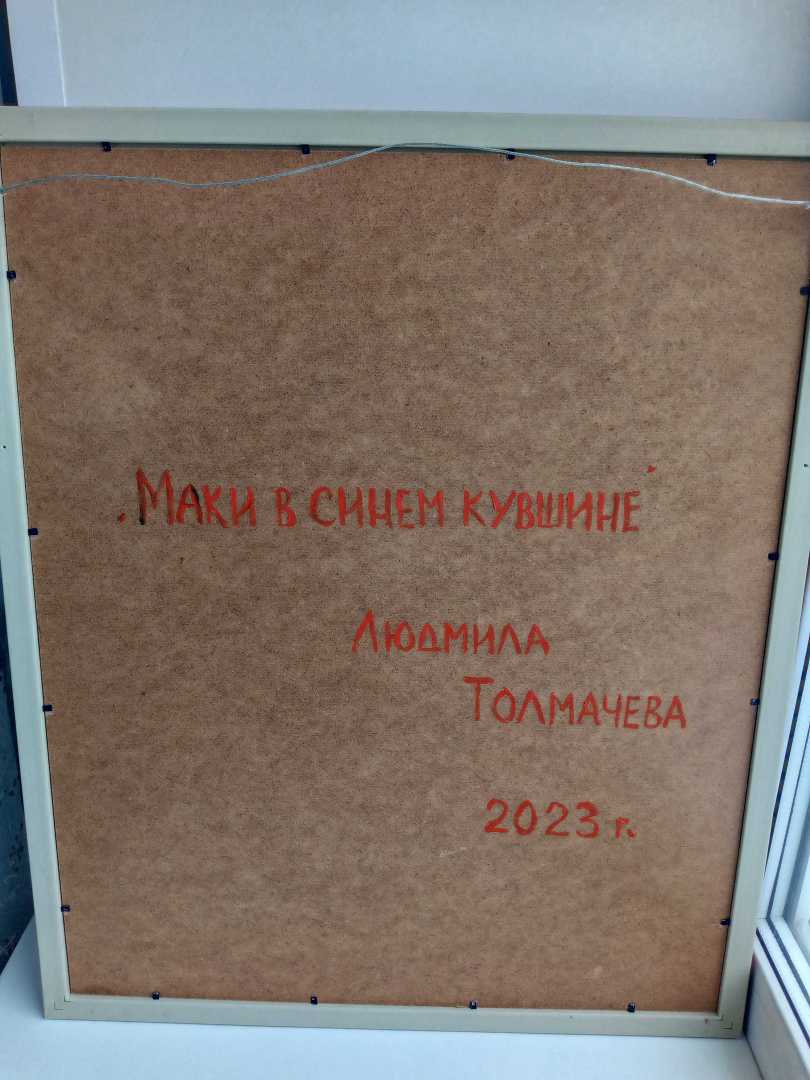 "Маки в синем кувшине"
Людмила
Толмачева
2023 г.